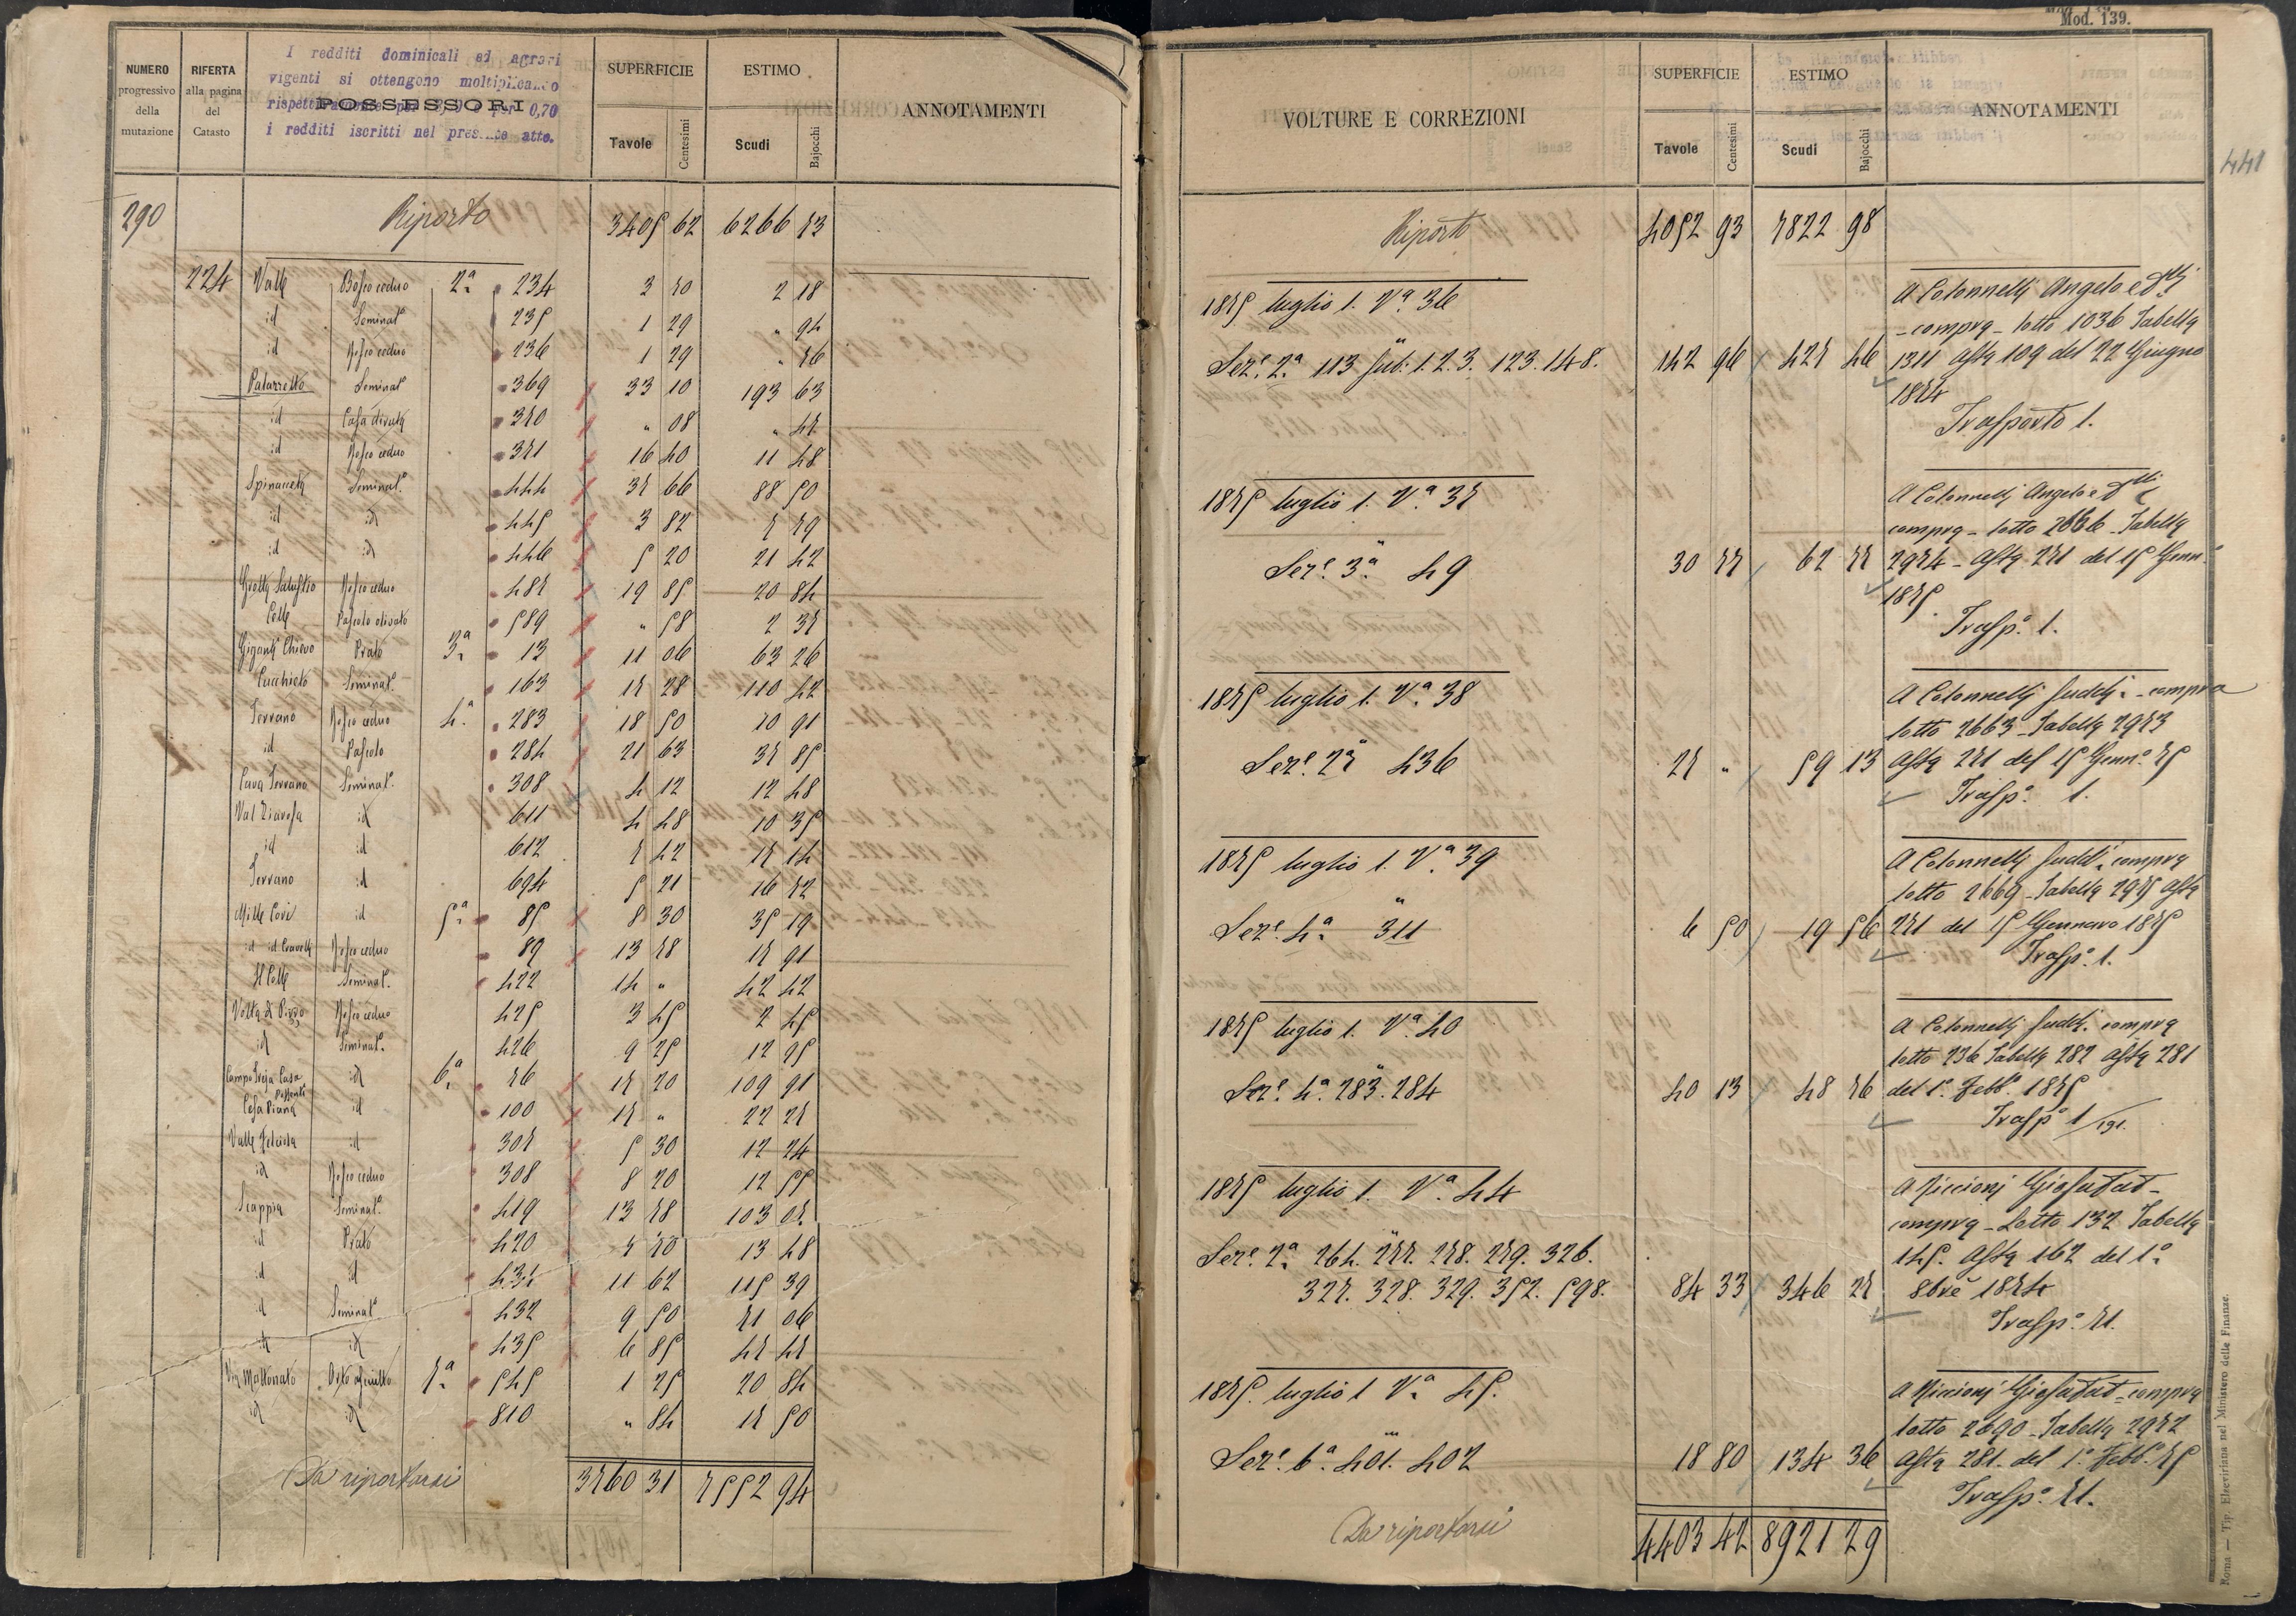 NUMERO progressivo della mutazione
RIFERTA alla pagina del Catasto
I redditi dominicali ed agrari
vigenti si ottengono moltiplicando
per 0,70
i redditi iscritti nel presente atto.
POSSESSORI
SUPERFICIE Tavole Centesimi
ESTIMO Scudi Bajocchi
ANNOTAMENTI
290 Riporto 3405 62 6266 73
224 Valle Bosco ceduo 2ª 234 3 70 2 18
id Seminat° 235 1 29 " 94
id Bosco ceduo 236 1 29 " 76
Palazzetto Seminat° 369 33 10 193 63
id Casa diruta 370 " 08 " 47
id Bosco ceduo 371 16 40 11 48
Spinacceta Seminat° 444 37 66 88 50
id id 445 3 82 7 79
id id 446 5 20 21 42
Grotta Salustio Bosco ceduo 487 19 85 20 84
Colle Pascolo olivato 589 " 58 2 37
Chiovo Prato 3ª 13 11 06 63 26
Cacchieto Seminat° 163 17 28 110 42
Terrano Bosco ceduo 4ª 283 18 50 10 91
id Pascolo 284 21 63 37 85
Cava Terrano Seminat° 308 4 12 12 48
Val id 611 4 48 10 35
id id 612 7 42 17 14
Terrano id 694 5 21 16 72
Mille Covi id 5ª 85 8 30 35 19
id id Bosco ceduo 89 13 78 17 91
Il Colle Seminat° 422 14 " 42 42
Volta di Bosco ceduo 425 3 45 2 45
id Seminat° 426 9 25 12 95
Campo Casa id 6ª 76 17 20 109 91
Cesa Piana id 100 17 " 22 27
Valle id 307 5 30 12 24
id Bosco ceduo 308 8 20 12 55
Scappia Seminat° 419 13 78 103 07
id Prato 420 5 70 13 48
id id 431 11 62 115 39
id Seminat° 432 9 50 71 06
id id 435 6 85 47 47
Via Mattonato Orto asciutto 7ª 545 1 25 20 84
id id 810 " 84 17 50
Da riportarsi 3760 31 7552 94
Mod. 139.
441
VOLTURE E CORREZIONI
SUPERFICIE Tavole Centesimi
ESTIMO Scudi Bajocchi
ANNOTAMENTI
Riporto 4052 93 7822 98
1875 luglio 1. Vª 36
Sezᵉ 2ª 113 sub: 1. 2. 3. 123. 148. 142 96 427 46
A Colonnelli Angelo e
compra - lotto 1036 Tabella
1311 Asta 109 del 22 Giugno
1874
Trasporto 1.
1875 luglio 1. Vª 37
Sezᵉ 3ª 49 30 77 62 77
A Colonnelli Angelo e
compra - lotto 2666 Tabella
2974 - Asta 271 del 15 Genn°
1875.
Trasp° 1.
1875 luglio 1. Vª 38
Sezᵉ 2ª 436 27 " 59 13
A Colonnelli sudd¹ - compra
lotto 2663 - Tabella 2973
Asta 271 del 15 Genn° 75
Trasp° 1.
1875 luglio 1. Vª 39
Sezᵉ 4ª 311 6 50 19 56
A Colonnelli sudd¹ compra
lotto 2669 - Tabella 2975 Asta
271 del 15 Gennaro 1875
Trasp° 1.
1875 luglio 1. Vª 40
Sezᵉ 4ª 283. 284 40 13 48 76
A Colonnelli sudd¹ compra
lotto 236 Tabella 282 Asta 281
del 1° Febb° 1875
Trasp° 1/191.
1875 luglio 1. Vª 44
Sezᵉ 2ª 264. 277. 278. 279. 326.
327. 328. 329. 352. 598. 84 33 346 27
A Piccioni Giosafat -
compra - Lotto 132 Tabella
145. Asta 162 del 1°
8bre 1874
Trasp° 71.
1875. luglio 1 Vª 45.
Sezᵉ 6ª 401. 402 18 80 134 36
A Piccioni Giosafat - compra
lotto 2690 - Tabella 2972
Asta 281. del 1° Febb° 75
Trasp° 71.
Da riportarsi 4403 42 8921 29
Roma — Tip. Elzeviriana nel Ministero delle Finanze.